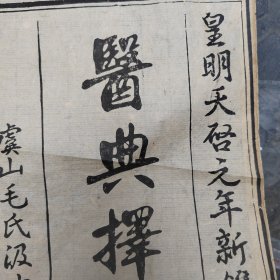 皇明天啓元年新鐫
醫典擇
虞山毛氏汲